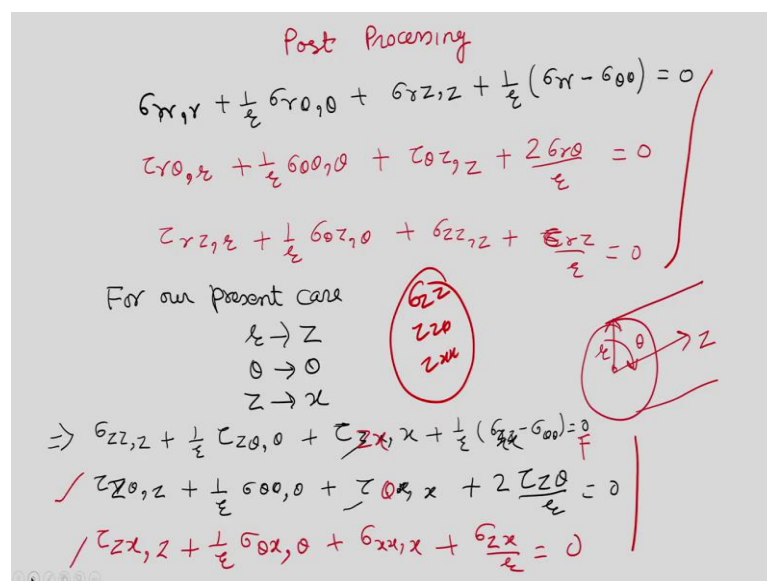 Post Processing
σrr,r + 1/r σrθ,θ + σrz,z + 1/r (σrr - σθθ) = 0
τrθ,r + 1/r σθθ,θ + τθz,z + 2σrθ/r = 0
τrz,r + 1/r σθz,θ + σzz,z + σrz/r = 0
For our present case
r → z
θ → θ
z → x
σzz
τzθ
τxx
r θ z
⇒ σzz,z + 1/r τzθ,θ + τzx,x + 1/r (σzz - σθθ) = 0
F
τzθ,z + 1/r σθθ,θ + τθx,x + 2 τzθ/r = 0
τzx,z + 1/r σθx,θ + σxx,x + σzx/r = 0